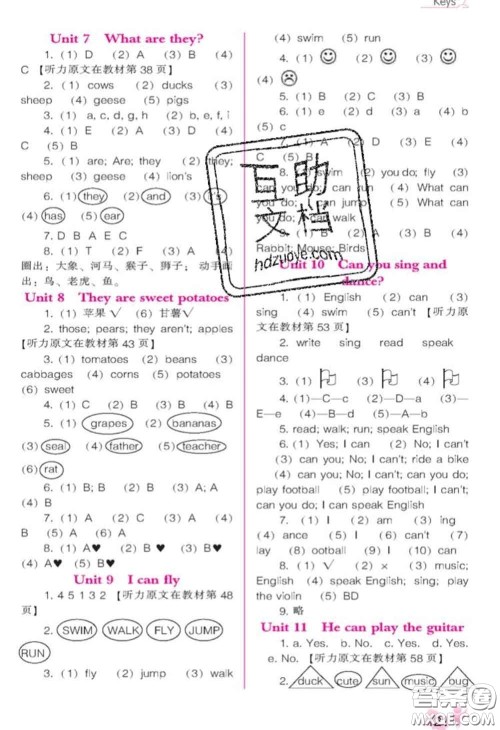 Keys
Unit 7 What are they?
1. (1) D (2) A (3) B (4)
C 【听力原文在教材第 38 页】
2. (1) cows (2) ducks (3)
sheep (4) geese (5) pigs
3. (1) a, c, d, g, h (2) b, e, f, i
4. (1) E (2) A (3) D (4)
C (5) B
5. (1) are; Are; they (2) they;
sheep (3) geese (4) lion's
6. (1) they (2) and (3)
(4) has (5) ear
7. D B A E C
8. (1) F (2) T (3) T (4)
圈出：大象、河马、猴子、狮子； 动手画
出：鸟、老虎、鱼。
Unit 8 They are sweet potatoes
1. (1) 苹果√ (6) 甘薯√
2. those; pears; they aren't; apples
【听力原文在教材第 43 页】
3. (1) tomatoes (2) beans (3)
cabbages (4) corns (5) potatoes
(6) sweet
4. (1) C (2) B (3) B (4) B
5. (1) grapes (2) bananas
(3) seal (4) father (5) teacher
(6) rat
6. (1) B; B (2) B (3) A; A
(4) B
7. (1) A (2) C (3) A (4)
A (5) A
8. (1) A♥ (2) B♥ (3) B♥
(4) A♥ (5) B♥
Unit 9 I can fly
1. 4 5 1 3 2 【听力原文在教材第 48
页】
2. SWIM WALK FLY JUMP
RUN
3. (1) fly (2) jump (3) walk
(4) swim (5) run
4. (1) (2) (3)
(4)
5. (1) B (2) C (3) B
6. (1) e (2) d (3) a (4) b
(5) c
7. (1) A (2) D (3) E (4)
C (5) B
8. (1) swim (2) you do; fly (3)
can you do; can run (4) What can
you do; can fly (5) What can
you do; can walk
9. (3) B (4) B
Rabbit; Mouse; Birds
Unit 10 Can you sing and
dance?
1. (1) English (2) can (3)
sing (4) swim (5) can't 【听力原
文在教材第 53 页】
2. write sing read speak
dance
3. (1) (2) (3)
4. (1)—C—c (2)—A—d (3)—
E—e (4)—B—b (5)—D—a
5. read; walk; run; speak English
6. (1) Yes; I can (2) No; I can't
(3) can you; No; I can't; ride a bike
(4) can you; No; I can't; can you do;
play football (5) play football; can't;
can you do; I can speak English
7. (1) am (2) dr (3) ing
(4) ance (5) wim (6) can't (7)
lay (8) ootball (9) I (10) can
8. (1) √ (2) × (3) music;
English (4) speak English; sing; play
the violin (5) BD
9. 略
Unit 11 He can play the guitar
1. a. Yes. b. No. c. Yes. d. Yes.
e. No. 【听力原文在教材第 58 页】
2. duck cute sun music bug
互助
文档
hdzuoye.com
答案圈